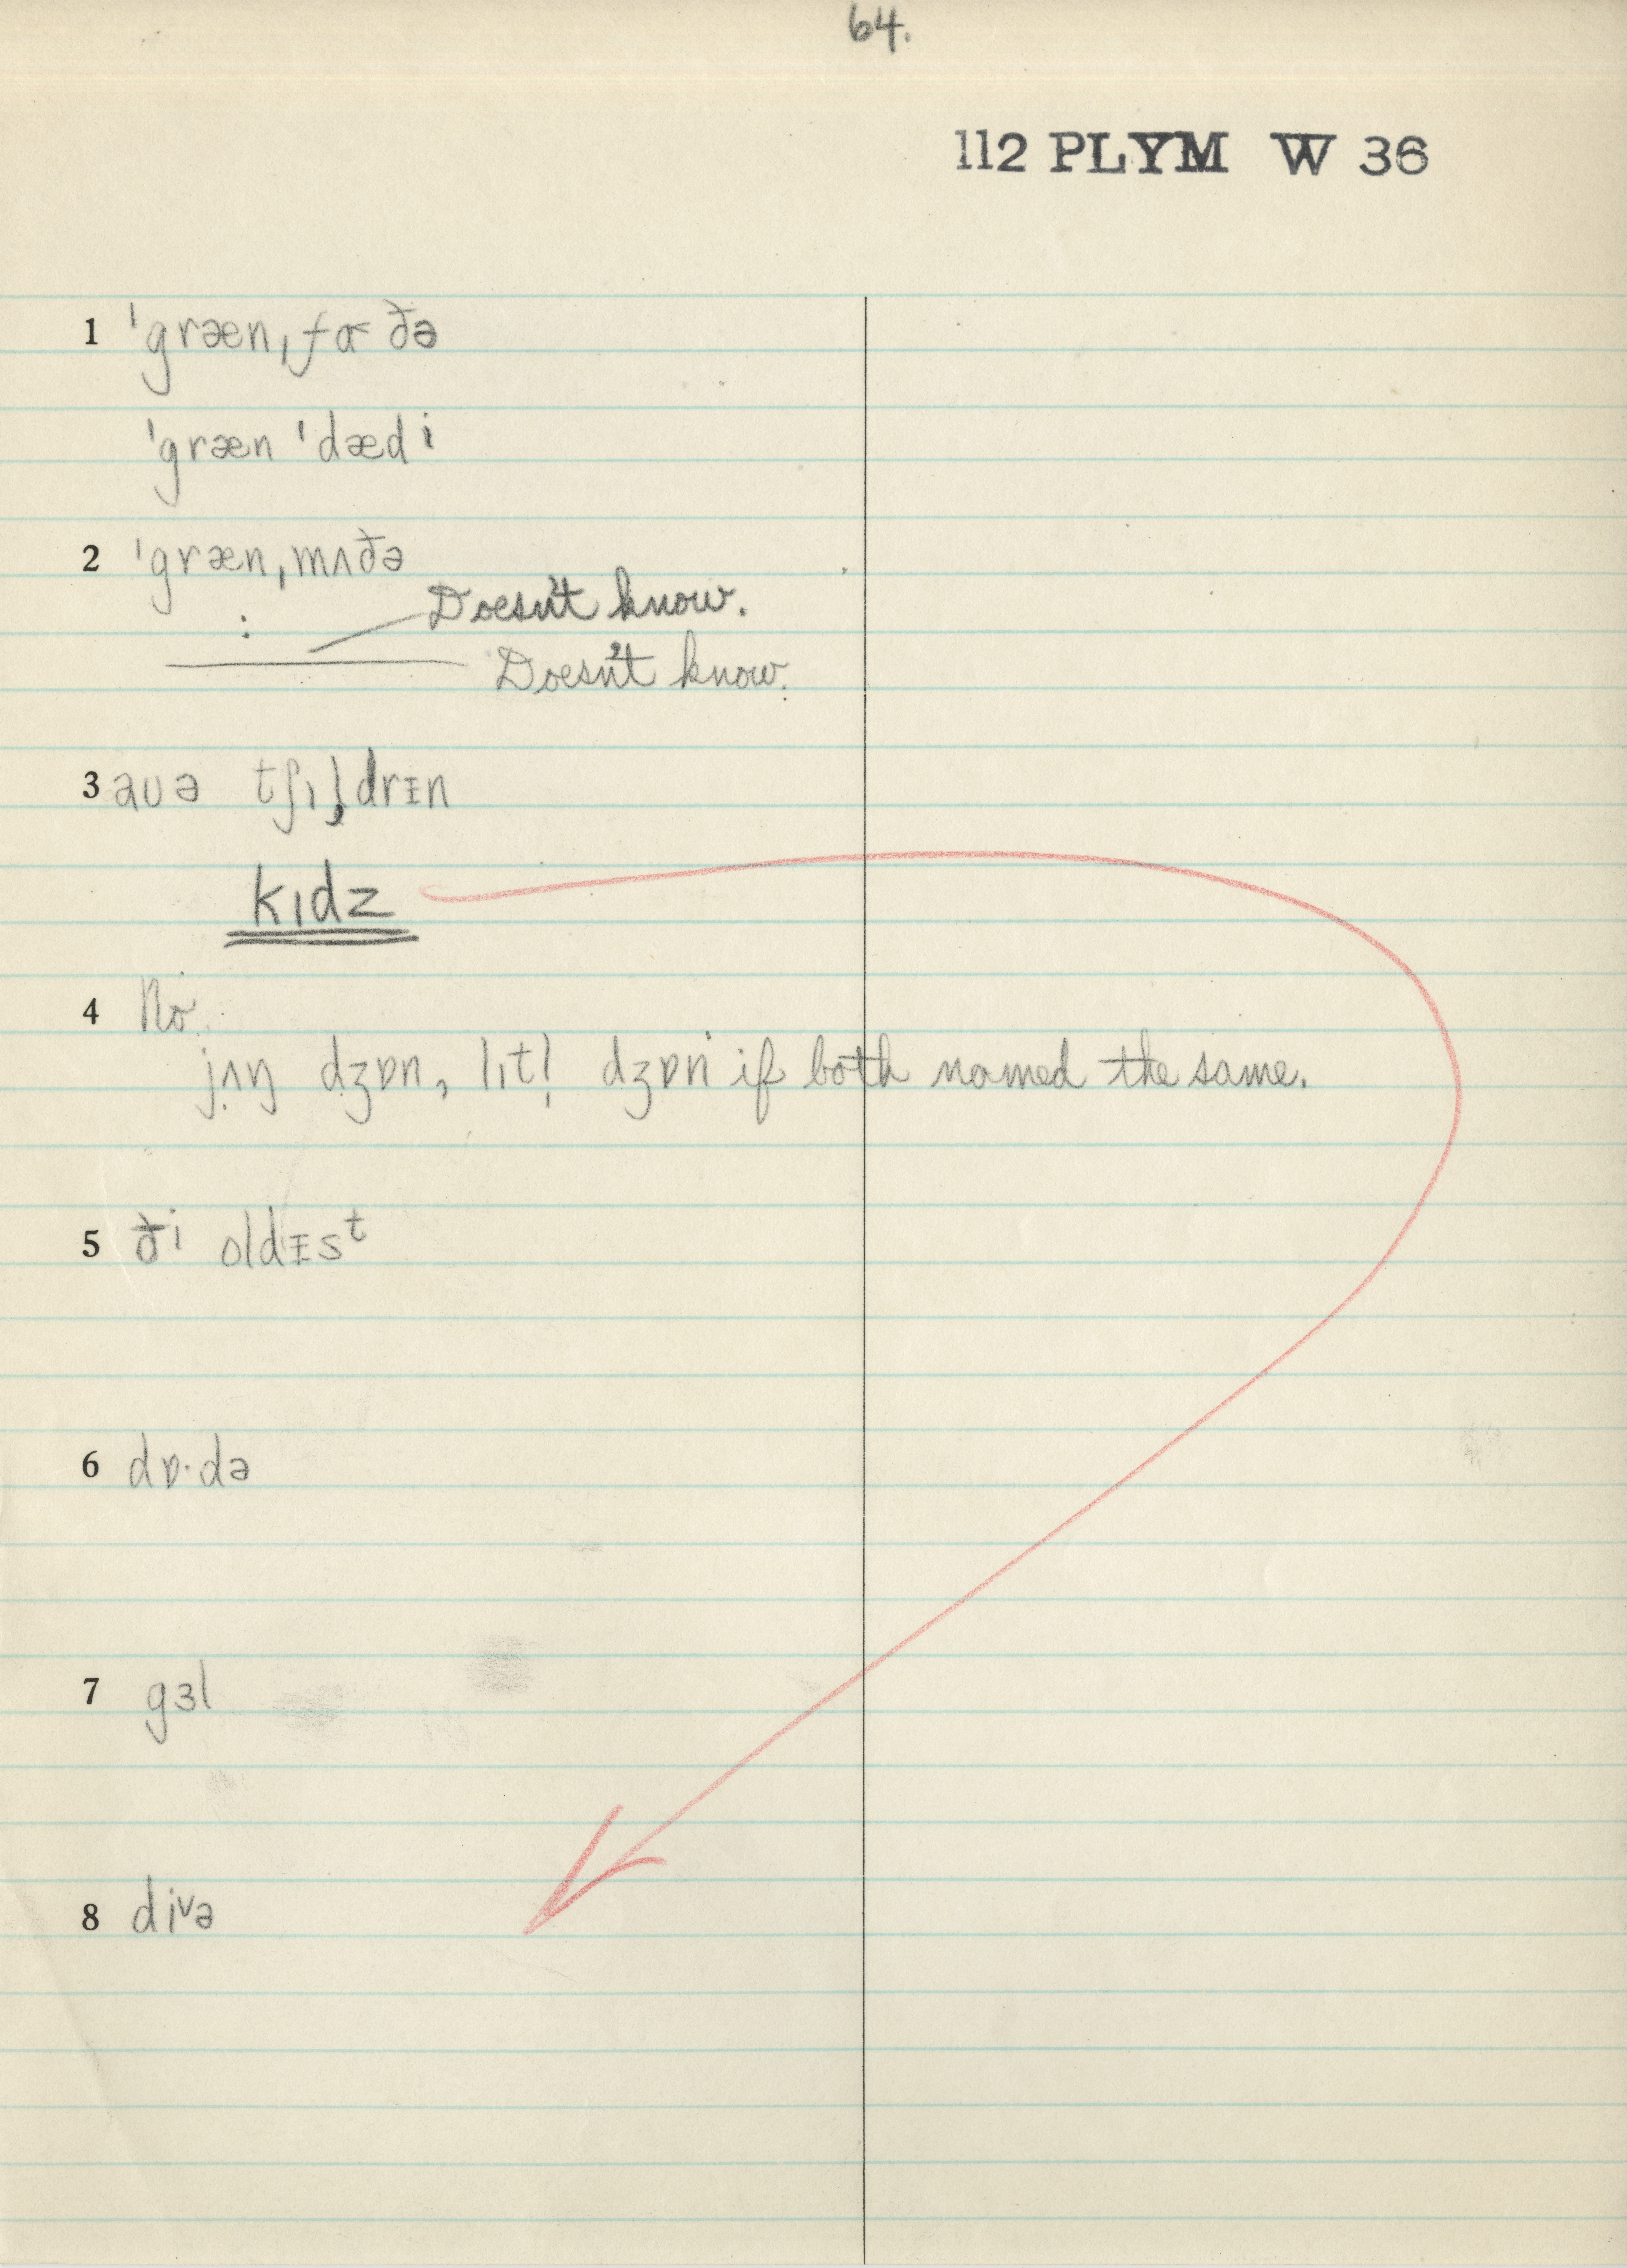 64.
112 PLYM W 36
1 ˈgrænˌfɑðə
ˈgræn ˈdædi
2 ˈgrænˌmʌðə
Doesn't know.
Doesn't know.
3 aʊə tʃɪl̩drᵻn
kɪdz
4 No.
jʌŋ dʒɒn, lɪtl̩ dʒɒn if both named the same.
5 ði oldᵻsᵗ
6 dɒ·də
7 gɜl
8 diᵛə